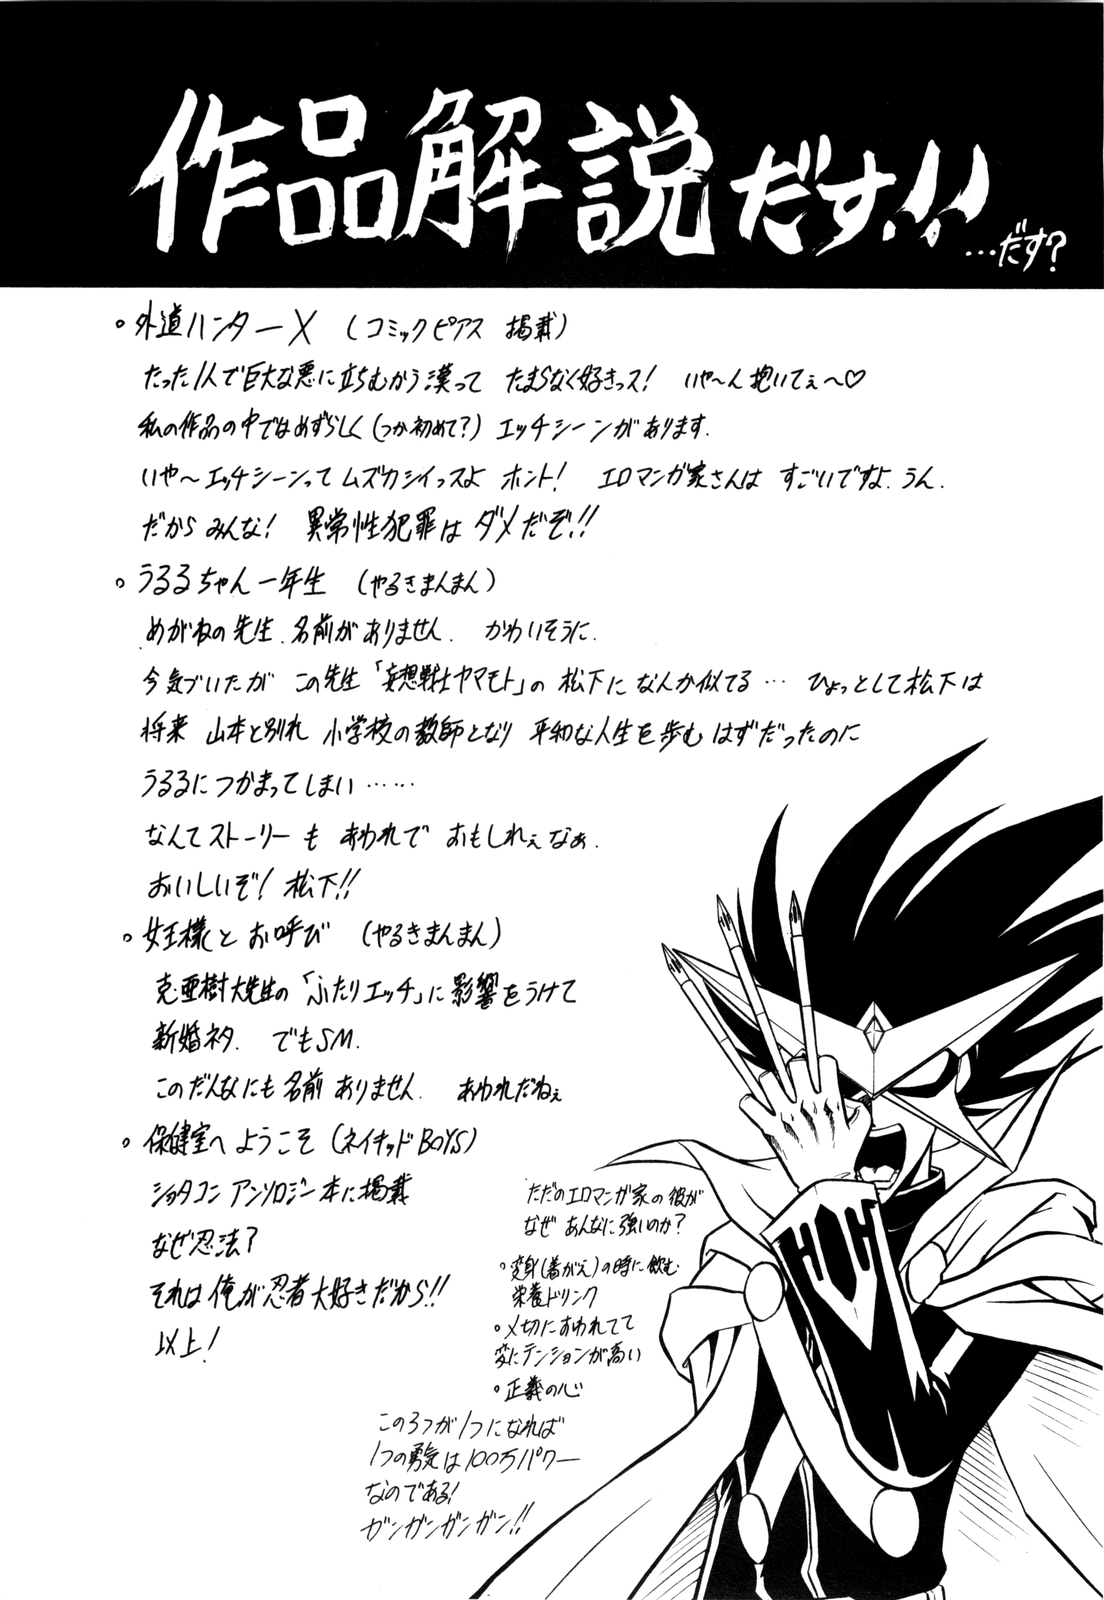 作品解説だす!!
…だす?
外道ハンターX (コミックピアス 掲載)
たった1人で巨大な悪に立ちむかう漢って たまらなく好きっス! いや〜ん抱いてぇ〜♡
私の作品の中ではめずらしく(つか初めて?) エッチシーンがあります.
いや〜エッチシーンって ムズカシイっスよ ホント! エロマンガ家さんは すごいですよ. うん.
だから みんな! 異常性犯罪は ダメだぞ!!
うるるちゃん一年生 (やるきまんまん)
めがねの先生. 名前がありません. かわいそうに.
今気づいたが この先生「妄想戦士ヤマモト」の 松下に なんか似てる… ひょっとして松下は
将来 山本と別れ 小学校の教師となり 平和な人生を歩む はずだったのに
うるるに つかまってしまい……
なんてストーリーも あわれで おもしれぇなぁ.
おいしいぞ! 松下!!
女王様とお呼び (やるきまんまん)
克・亜樹大先生の「ふたりエッチ」に影響をうけて
新婚ネタ. でもSM.
このだんなにも 名前 ありません. あわれだねぇ
保健室へようこそ (ネイキッドBOYS)
ショタコン アンソロジー本に掲載
なぜ忍法?
それは 俺が忍者大好きだから!!
以上!
ただのエロマンガ家の彼が
なぜ あんなに強いのか?
・変身(着がえ)の時に飲む
栄養ドリンク
・〆切におわれてて
変にテンションが高い
・正義の心
この3つが1つになれば
1つの勇気は100万パワー
なのである!
ガンガンガンガン!!